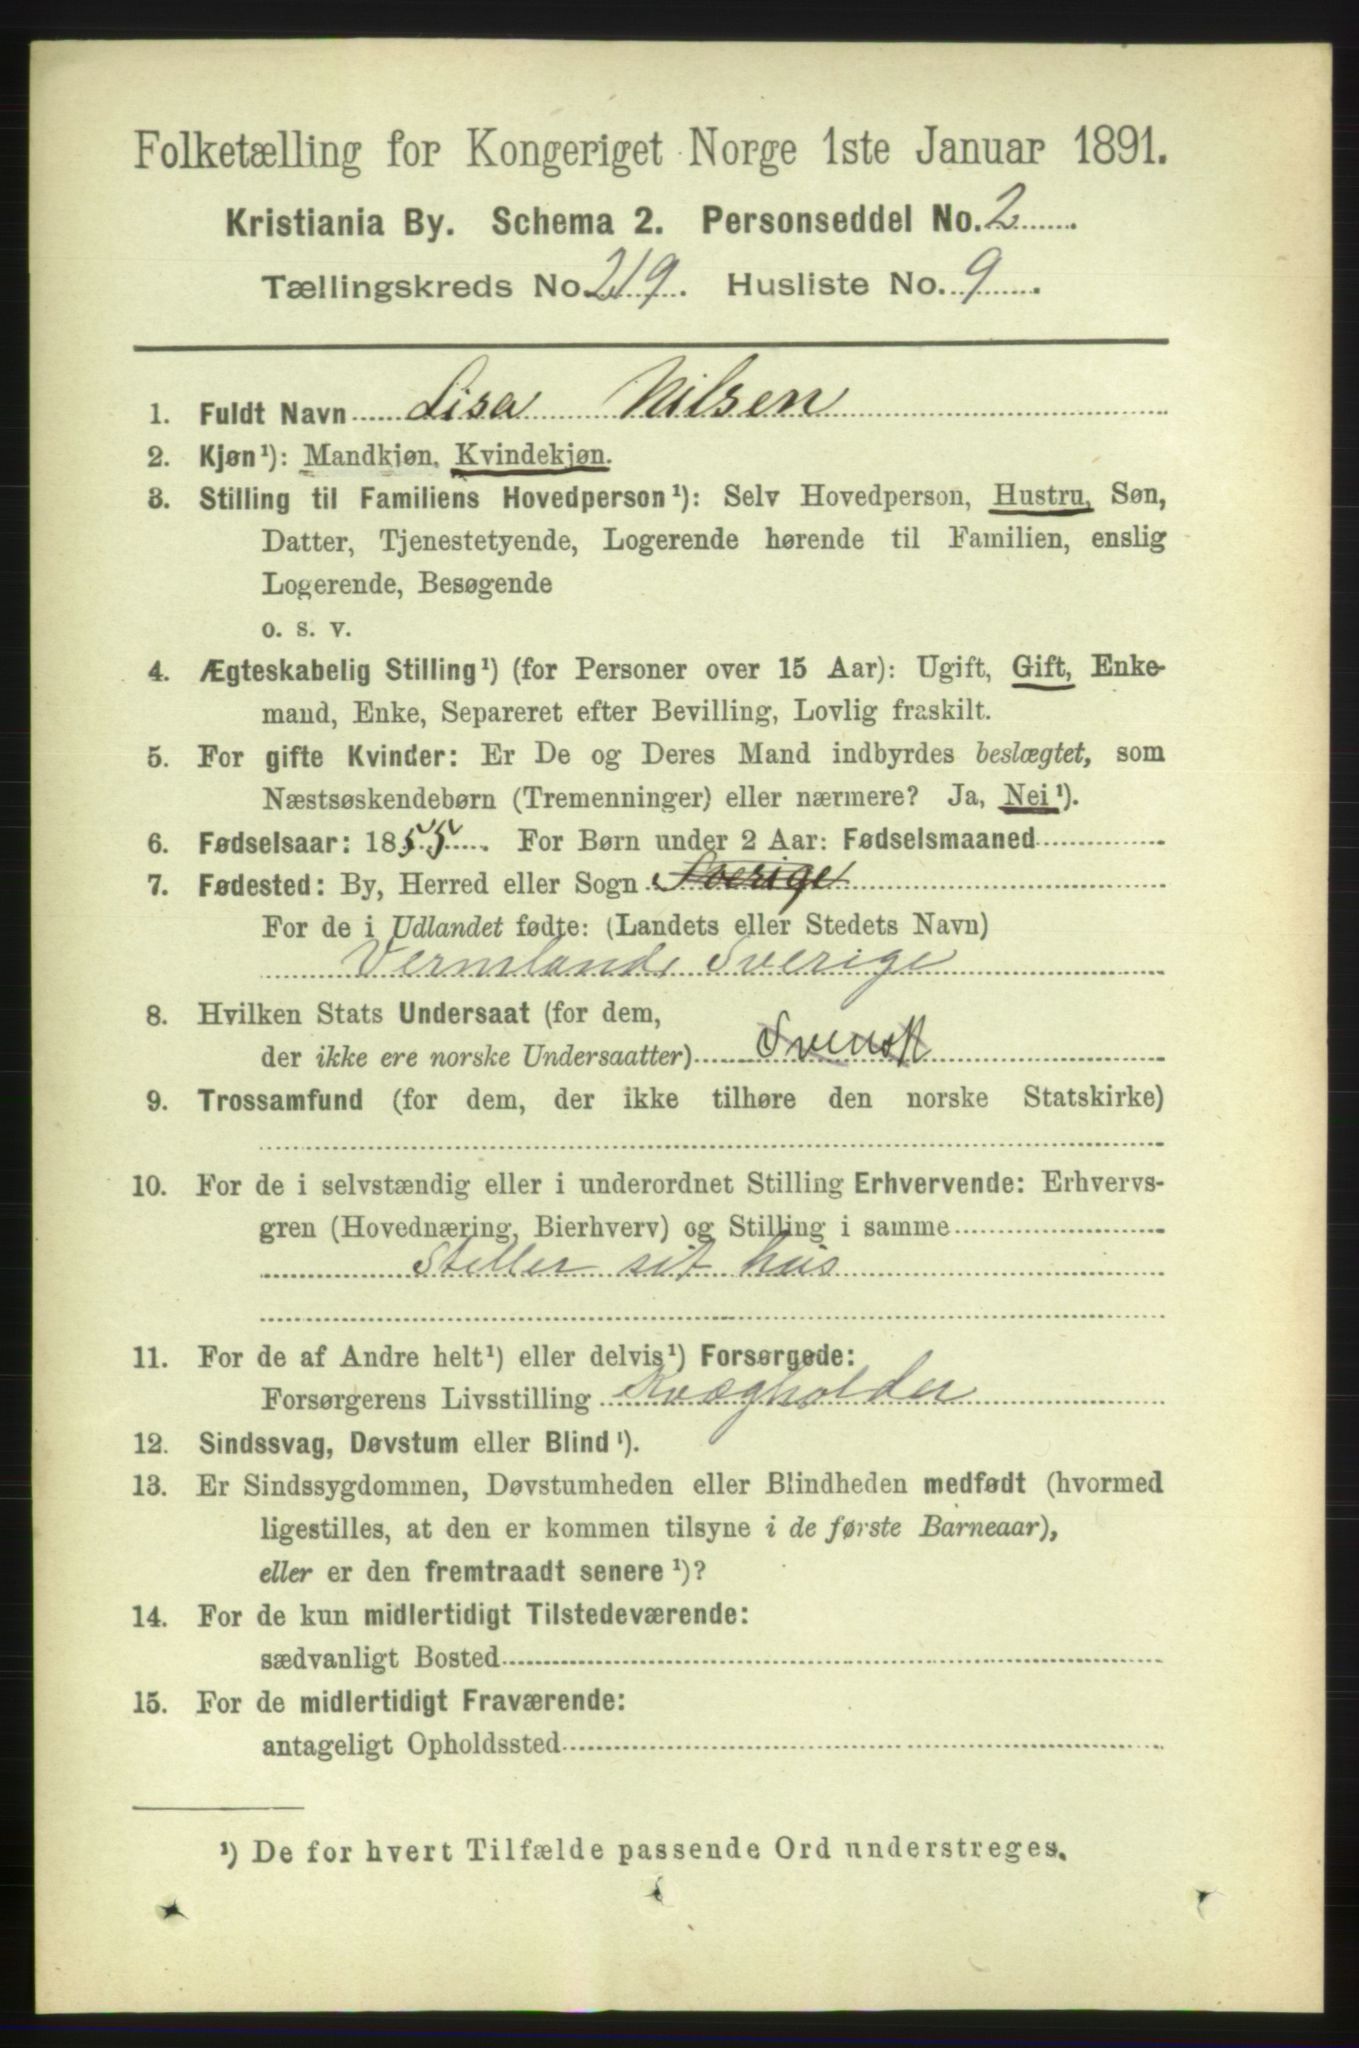 Folketælling for Kongeriget Norge 1ste Januar 1891.
Kristiania By. Schema 2. Personseddel No. 2
Tællingskreds No. 219. Husliste No. 9.
1. Fuldt Navn Lisa Nilsen
2. Kjøn¹): Mandkjøn, Kvindekjøn.
3. Stilling til Familiens Hovedperson¹): Selv Hovedperson, Hustru, Søn,
Datter, Tjenestetyende, Logerende hørende til Familien, enslig
Logerende, Besøgende
o. s. v.
4. Ægteskabelig Stilling¹) (for Personer over 15 Aar): Ugift, Gift, Enke-
mand, Enke, Separeret efter Bevilling, Lovlig fraskilt.
5. For gifte Kvinder: Er De og Deres Mand indbyrdes beslægtet, som
Næstsøskendebørn (Tremenninger) eller nærmere? Ja, Nei¹).
6. Fødselsaar: 1855. For Børn under 2 Aar: Fødselsmaaned
7. Fødested: By, Herred eller Sogn Sverige
For de i Udlandet fødte: (Landets eller Stedets Navn)
Vermland, Sverige
8. Hvilken Stats Undersaat (for dem,
der ikke ere norske Undersaatter) Svensk
9. Trossamfund (for dem, der ikke tilhøre den norske Statskirke)
10. For de i selvstændig eller i underordnet Stilling Erhvervende: Erhvervs-
gren (Hovednæring, Bierhverv) og Stilling i samme
Steller sit hus
11. For de af Andre helt¹) eller delvis¹) Forsørgede:
Forsørgerens Livsstilling Kvægholder
12. Sindssvag, Døvstum eller Blind¹).
13. Er Sindssygdommen, Døvstumheden eller Blindheden medfødt (hvormed
ligestilles, at den er kommen tilsyne i de første Barneaar),
eller er den fremtraadt senere¹)?
14. For de kun midlertidigt Tilstedeværende:
sædvanligt Bosted
15. For de midlertidigt Fraværende:
antageligt Opholdssted
¹) De for hvert Tilfælde passende Ord understreges.